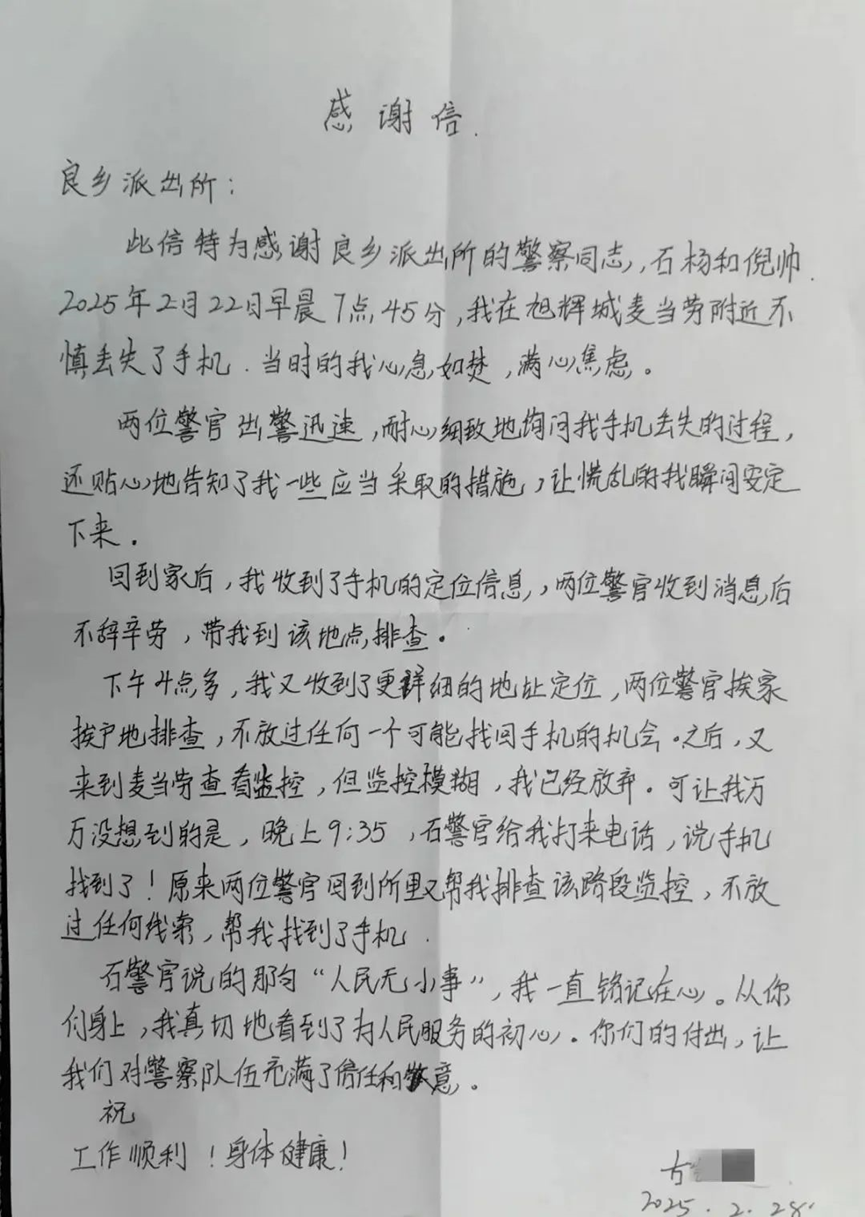 感谢信.
良乡派出所:
此信特为感谢良乡派出所的警察同志,石杨和倪帅.
2025年2月22日早晨7点45分,我在旭辉城麦当劳附近不
慎丢失了手机.当时的我心急如焚,满心焦虑。
两位警官出警迅速,耐心细致地询问我手机丢失的过程,
还贴心地告知了我一些应当采取的措施,让慌乱的我瞬间安定
下来。
回到家后,我收到了手机的定位信息,两位警官收到消息后
不辞辛劳,带我到该地点排查。
下午4点多,我又收到了更详细的地址定位,两位警官挨家
挨户地排查,不放过任何一个可能找回手机的机会。之后,又
来到麦当劳查看监控,但监控模糊,我已经放弃。可让我万
万没想到的是,晚上9:35,石警官给我打来电话,说手机
找到了!原来两位警官回到所里又帮我排查该路段监控,不放
过任何线索,帮我找到了手机.
石警官说的那句“人民无小事”,我一直铭记在心。从你
们身上,我真切地看到了为人民服务的初心。你们的付出,让
我们对警察队伍充满了信任和敬意。
祝
工作顺利!身体健康!
方
2025.2.28.